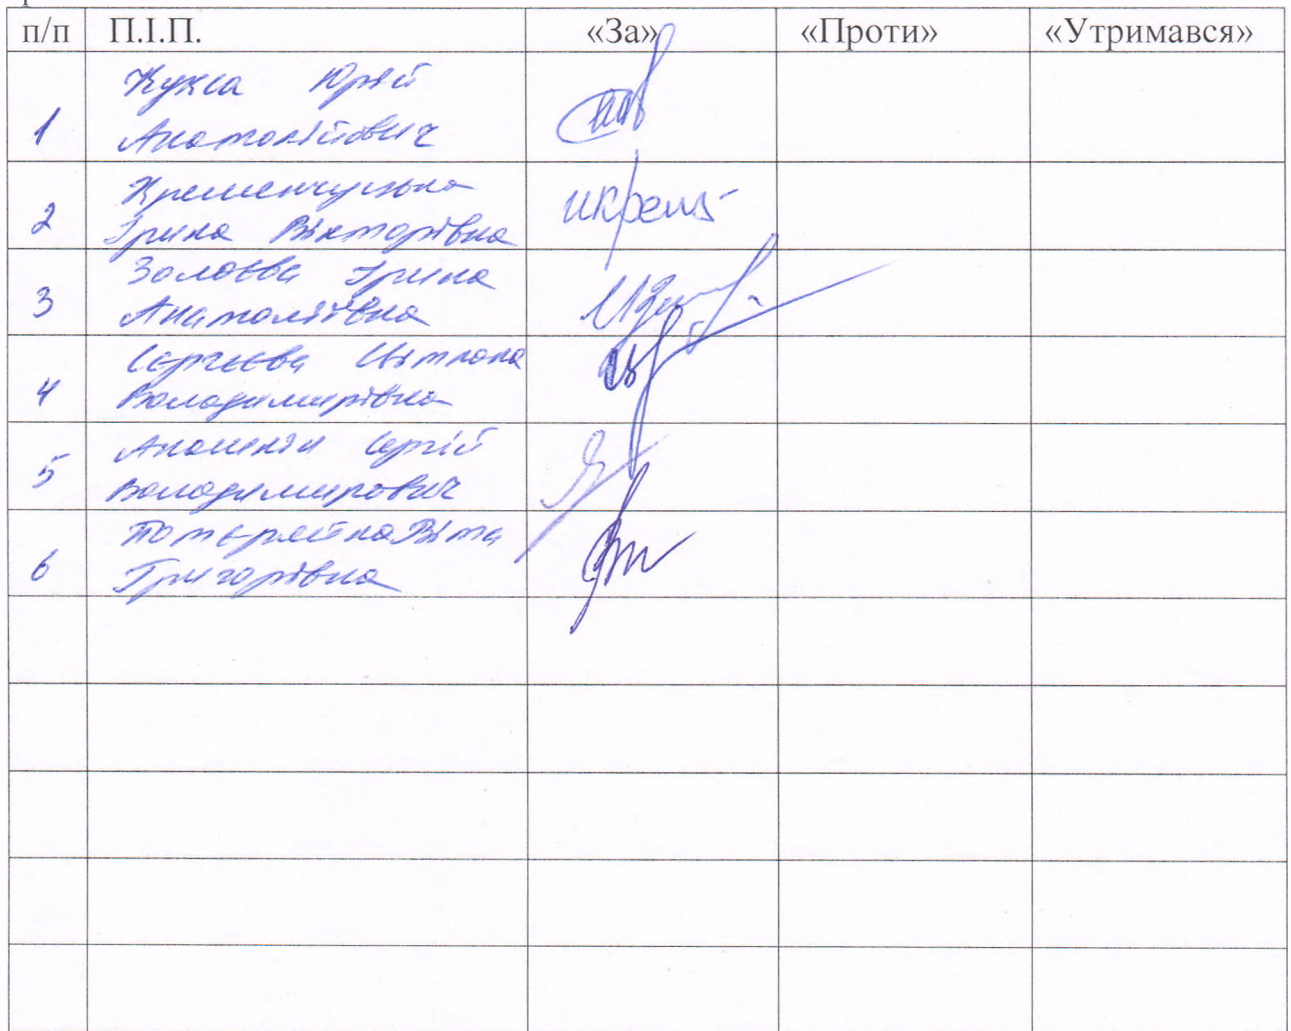 п/п П.І.П. «За» «Проти» «Утримався»
Кукса Юрій
1 Анатолійович
Кременчуцька
2 Ірина Вікторівна
Золоєва Ірина
3 Анатоліївна
Сергєєва Світлана
4 Володимирівна
Аношкін Сергій
5 Володимирович
Віта
6 Григорівна